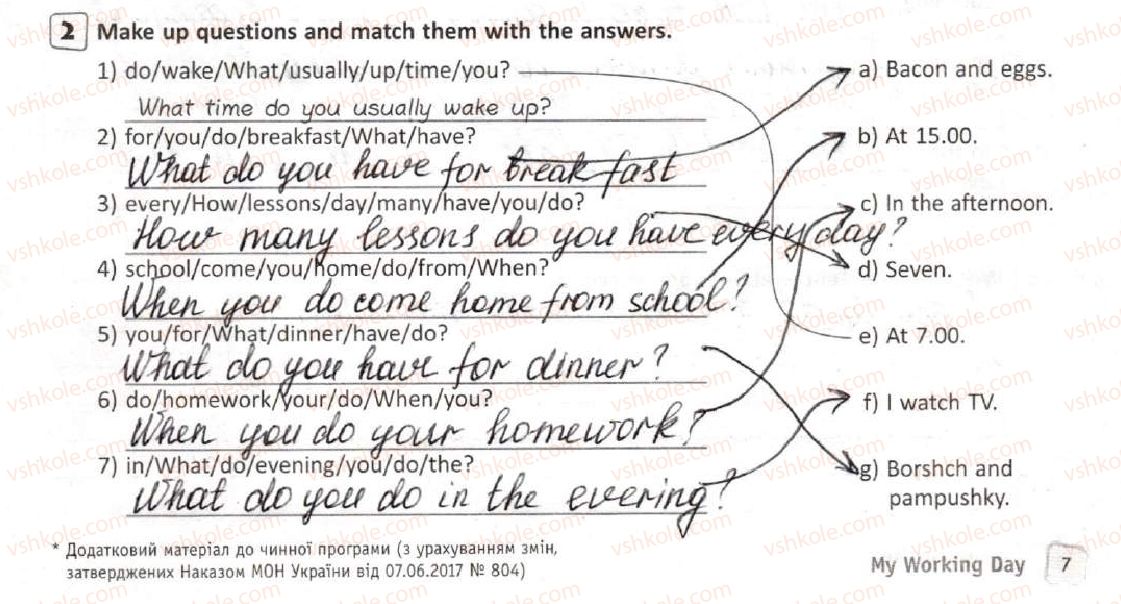 2 Make up questions and match them with the answers.
1) do/wake/What/usually/up/time/you?
a) Bacon and eggs.
What time do you usually wake up?
2) for/you/do/breakfast/What/have?
b) At 15.00.
What do you have for breakfast
3) every/How/lessons/day/many/have/you/do?
c) In the afternoon.
How many lessons do you have every day?
4) school/come/you/home/do/from/When?
d) Seven.
When you do come home from school?
5) you/for/What/dinner/have/do?
e) At 7.00.
What do you have for dinner?
6) do/homework/your/do/When/you?
f) I watch TV.
When you do your homework?
7) in/What/do/evening/you/do/the?
g) Borshch and
pampushky.
What do you do in the evering?
* Додатковий матеріал до чинної програми (з урахуванням змін,
затверджених Наказом МОН України від 07.06.2017 № 804)
My Working Day 7
vshkole.com